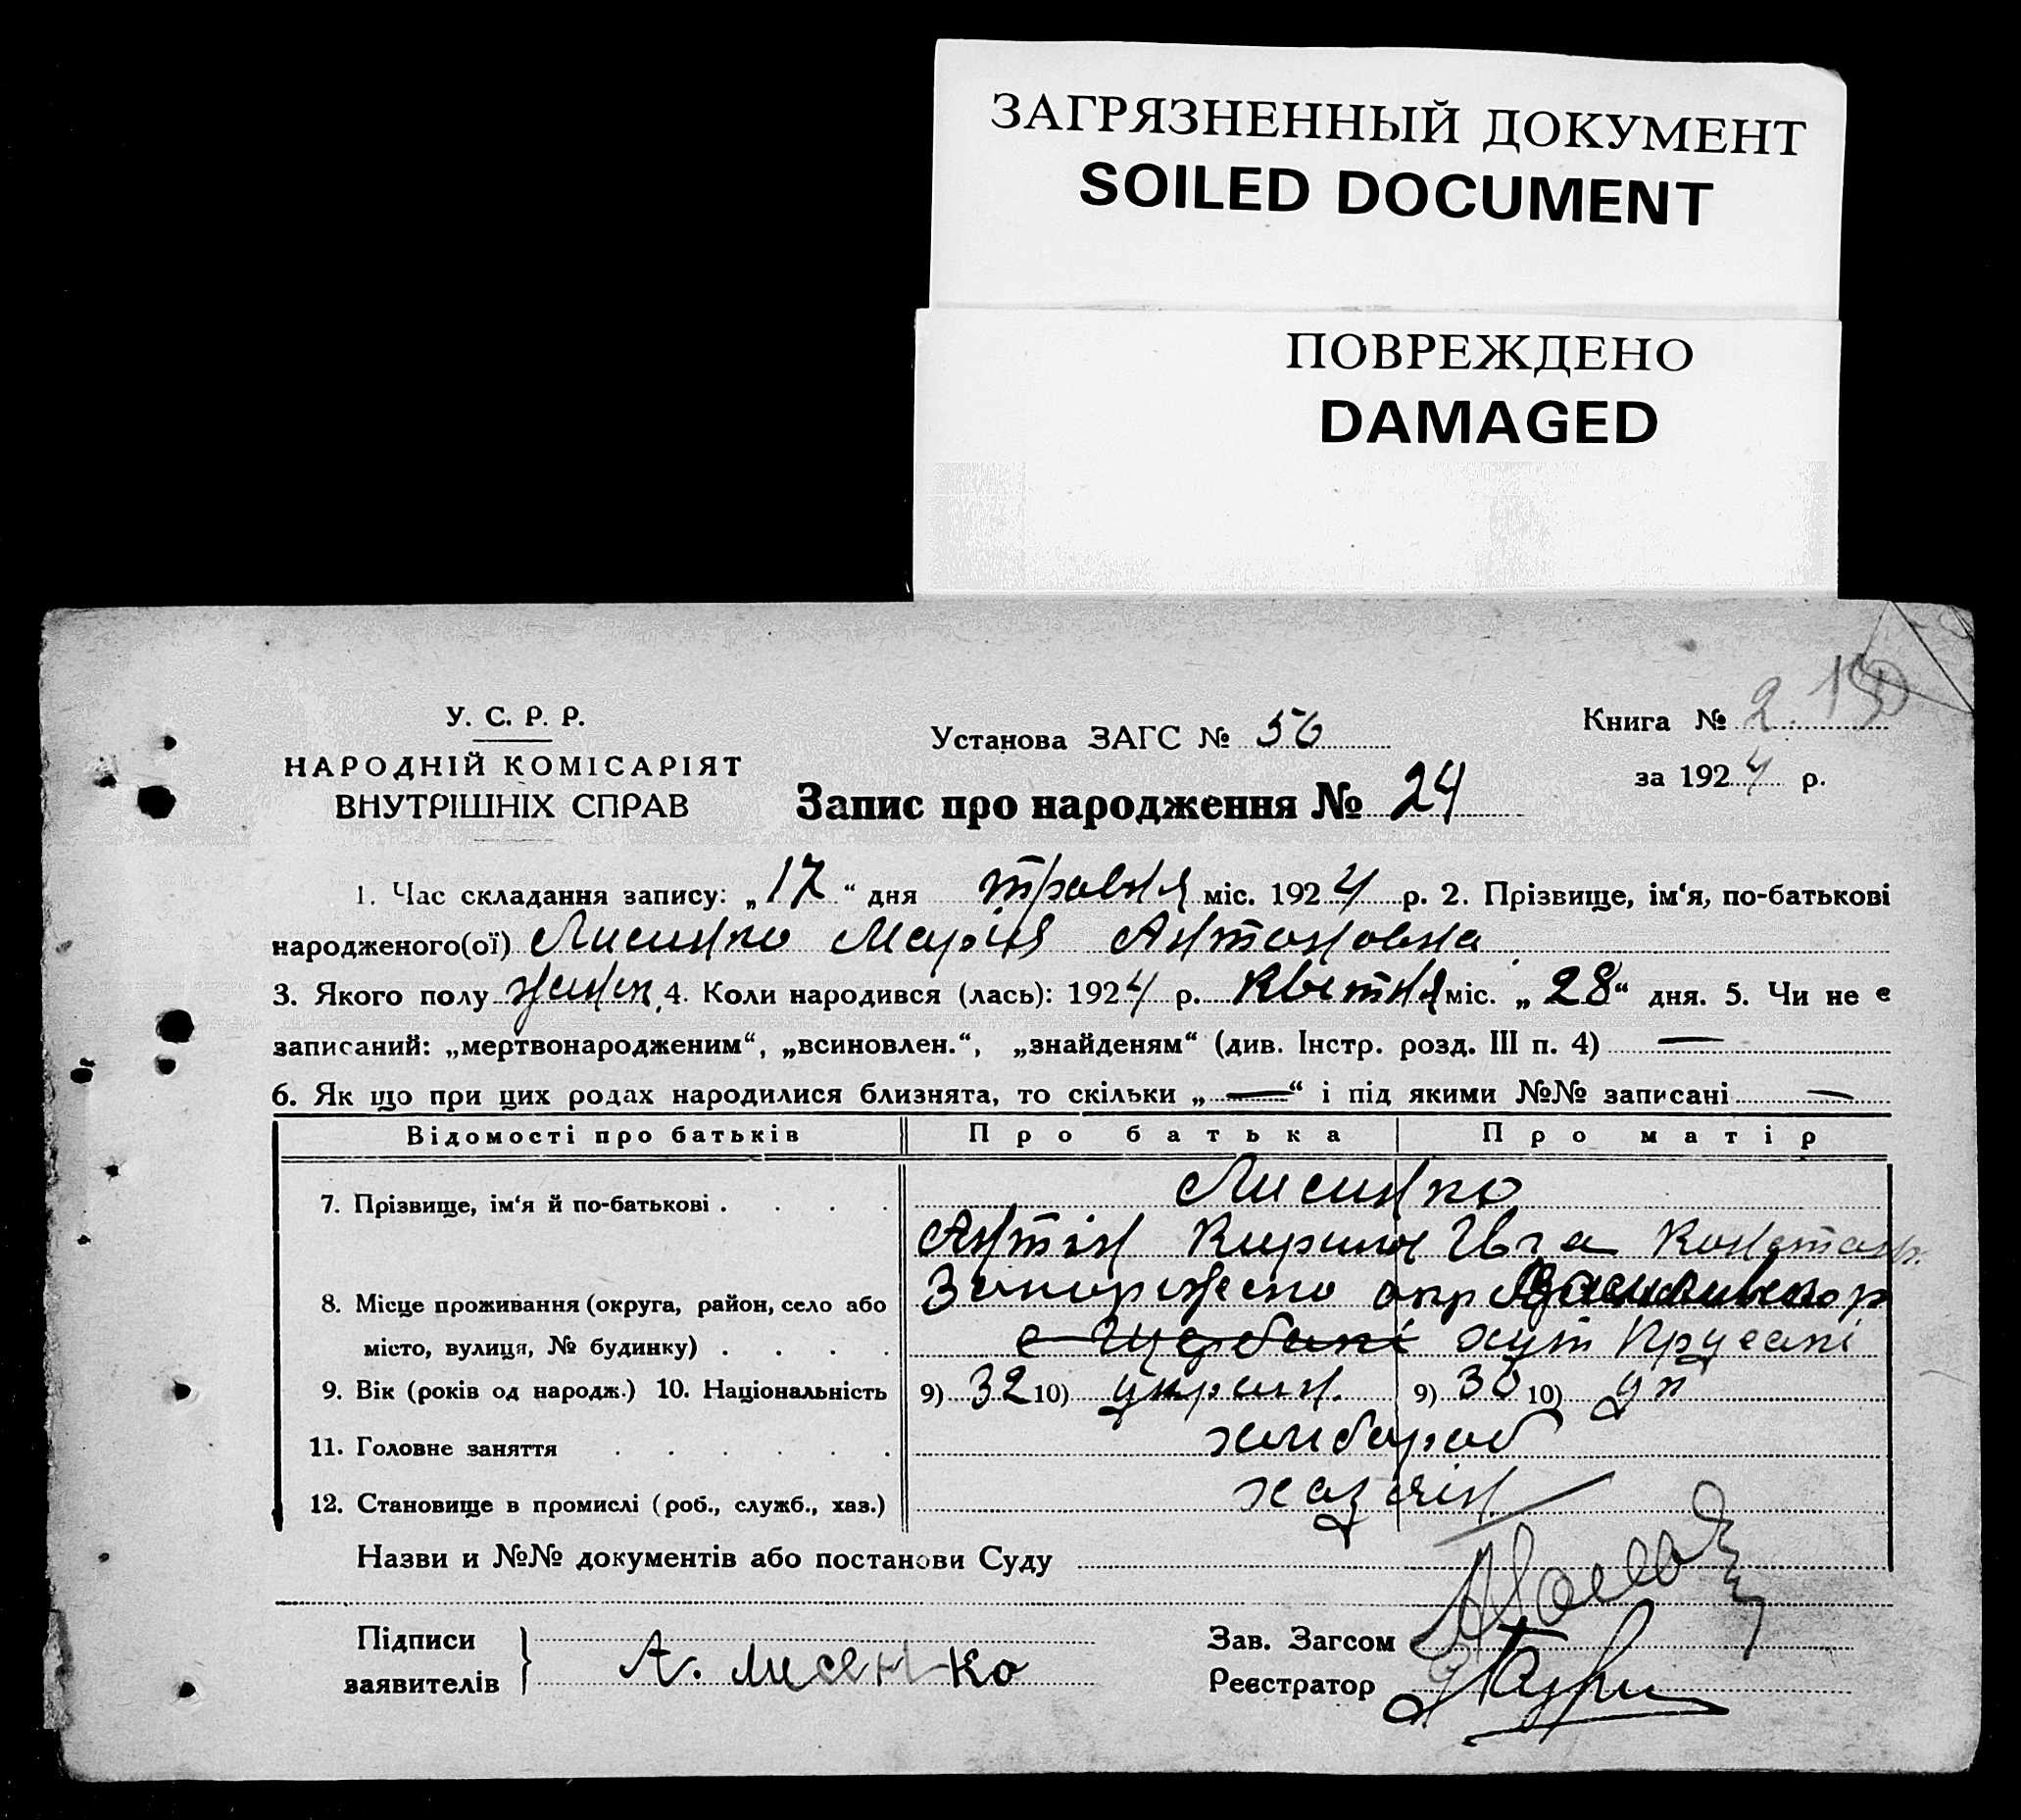 ЗАГРЯЗНЕННЫЙ ДОКУМЕНТ
SOILED DOCUMENT
ПОВРЕЖДЕНО
DAMAGED
У. С. Р. Р.
НАРОДНІЙ КОМІСАРІЯТ
ВНУТРІШНІХ СПРАВ
Установа ЗАГС № 56
Книга № 2
за 1924 р.
Запис про народження № 24
1. Час складання запису: „17“ дня травня міс. 1924 р. 2. Прізвище, ім‘я, по-батькові
народженого(ої) Лисенко Марія Антоновна
3. Якого полу женск. 4. Коли народився (лась): 1924 р. Квітня міс. „28“ дня. 5. Чи не є
записаний: „мертвонародженим“, „всиновлен.“, „знайденям“ (див. Інстр. розд. III п. 4) —
6. Як що при цих родах народилися близнята, то скільки „—“ і під якими №№ записані —
Відомості про батьків Про батька Про матір
7. Прізвище, ім‘я й по-батькові . . . . Лисенко
Антін Кирил Ивга Констант.
8. Місце проживання (округа, район, село або Запоріжско окр Василивско р
місто, вулиця, № будинку) . . . . с Щербані хут
9. Вік (років од народж.) 10. Національність 9) 32 10) украин. 9) 30 10) ук
11. Головне заняття . . . . . хлибороб
12. Становище в промислі (роб., служб., хаз.) хазяін
Назви и №№ документів або постанови Суду
Підписи
заявителів } А. Лисенко
Зав. Загсом
Реєстратор